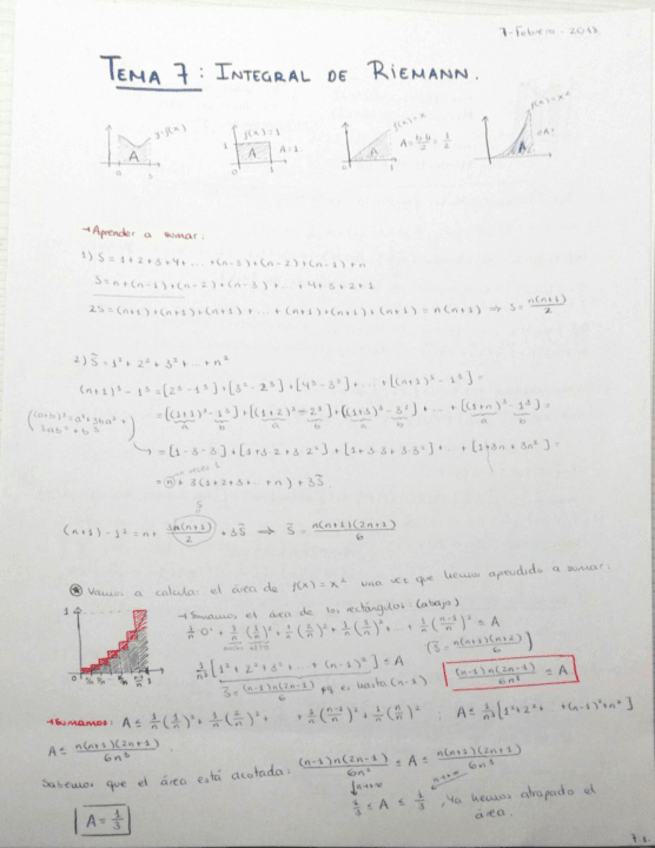 7-Febrero-2018
TEMA 7: INTEGRAL DE RIEMANN.
y=f(x) f(x)=1 f(x)=x f(x)=x²
A 1 A A=1 A A=b·h/2=1/2 A
0 1 1
→Aprender a sumar:
1) S=1+2+3+4+...+(n-3)+(n-2)+(n-1)+n
S=n+(n-1)+(n-2)+(n-3)+...+4+3+2+1
2S=(n+1)+(n+1)+(n+1)+...+(n+1)+(n+1)+(n+1)=n(n+1) ⇒ S=n(n+1)/2
2) S̃=1²+2²+3²+...+n²
(n+1)³-1³=[2³-1³]+[3³-2³]+[4³-3³]+...+[(n+1)³-1³]=
((a+b)³=a³+3ba²+3ab²+b³)
=[(1+1)³-1³]+[(1+2)³-2³]+[(1+3)³-3³]+...+[(1+n)³-1³]=
a b a b a b a b
=[1·3·3]+[1+3·2+3·2²]+[1+3·3+3·3²]+...+[1+3n+3n²]=
n veces 1
=n+3(1+2+3+...+n)+3S̃.
S
(n+1)-1³=n+3n(n+1)/2+3S̃ ⇒ S̃=n(n+1)(2n+1)/6
⊛ Vamos a calcular el área de f(x)=x² una vez que hemos aprendido a sumar:
→Sumamos el área de los rectángulos: (abajo)
1/n 0²+1/n(1/n)²+1/n(2/n)²+1/n(3/n)²+...+1/n(n-1/n)² ≤ A
(S̃=n(n+1)(n+2)/6)
1/n³[1²+2²+3²+...+(n-1)²] ≤ A
S̃=(n-1)n(2n-1)/6 pq es hasta (n-1)
(n-1)n(2n-1)/6n³ ≤ A
→Sumamos: A≤1/n(1/n)²+1/n(2/n)²+ +1/n(n-1/n)²+1/n(n/n)² ; A≤1/n³[1²+2²+...+(n-1)²+n²]
A≤n(n+1)(2n+1)/6n³.
Sabemos que el área está acotada: (n-1)n(2n-1)/6n³ ≤ A ≤ n(n+1)(2n+1)/6n³
n→∞ n→∞
1/3 ≤ A ≤ 1/3, Ya hemos atrapado el área.
A=1/3